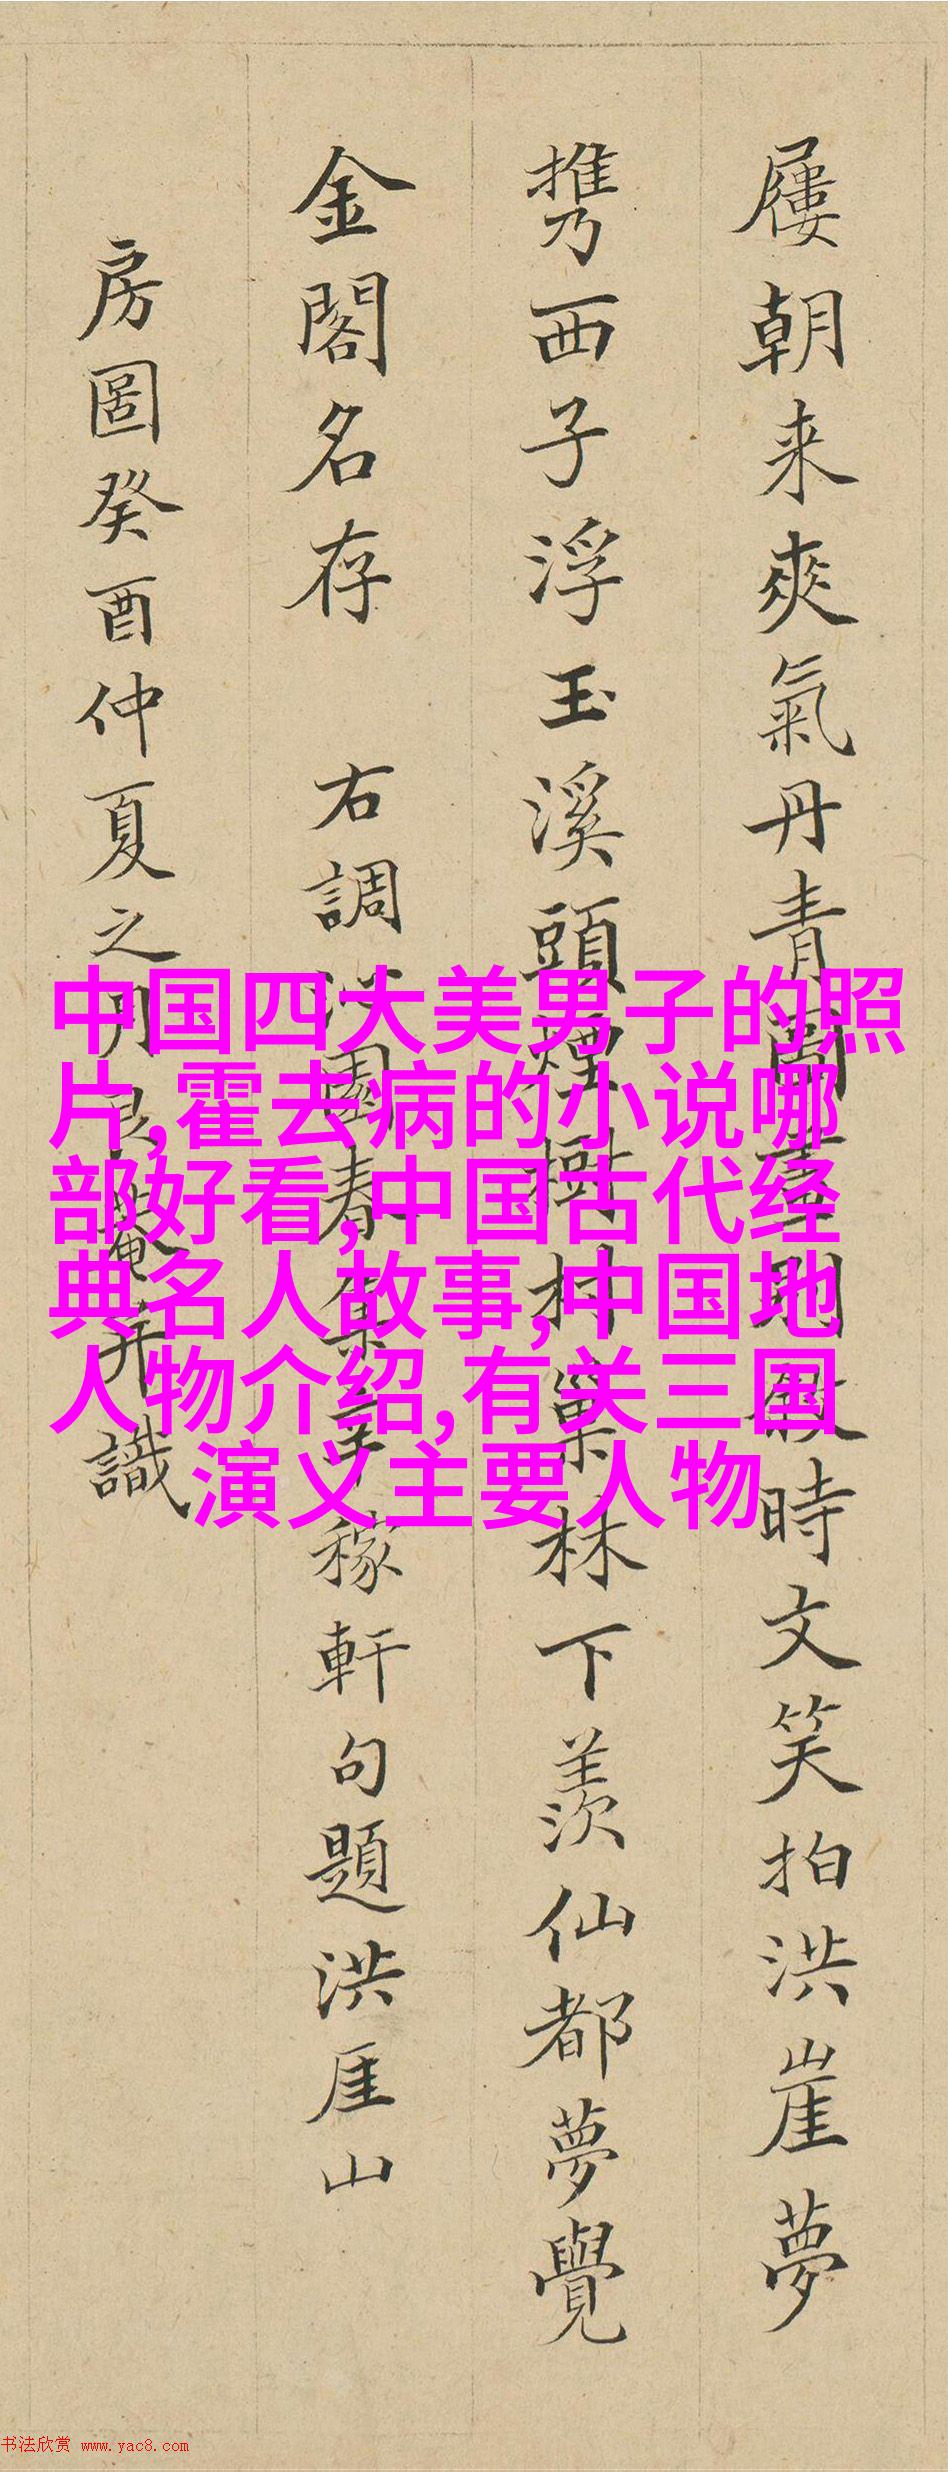 屨朝来爽氣丹青時文笑拍洪崖夢
攜西子浮玉溪頭煙樹村巢林下羨仙都夢覺
金閣名存 右調沁園春集辛稼軒句題洪厓山
房圖癸酉仲夏之月菴并識
中国四大美男子的照
片,霍去病的小说哪
部好看,中国古代经
典名人故事,中国地
人物介绍,有关三国
演义主要人物
书法欣赏 www.yac8.com